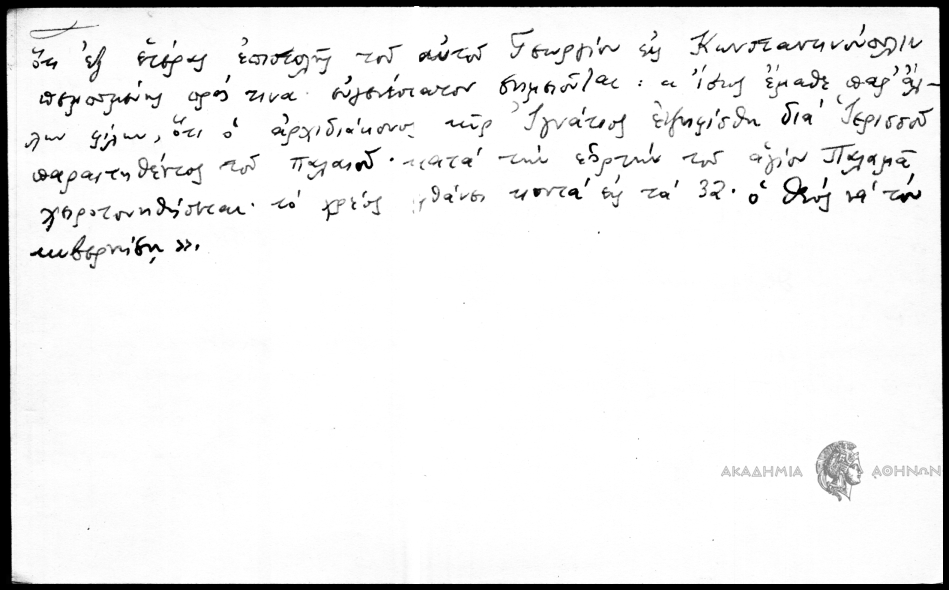 Ὅτι ἐξ ἑτέρας ἐπιστολῆς τοῦ αὐτοῦ Γεωργίου εἰς Κωνσταντινούπολιν
πεμπομένης πρός τινα εὐγενέστατον σημειοῦται: « ἴσως ἔμαθε παρ' ἄλ-
λων φίλων, ὅτι ὁ ἀρχιδιάκονος κὺρ Ἰγνάτιος ἐψηφίσθη διὰ Ἱερισσοῦ
παραιτηθέντος τοῦ παλαιοῦ· κατὰ τὴν ἑορτήν τοῦ ἁγίου Παλαμᾶ
χειροτονηθήσεται· τὸ χρέος φθάνει κοντὰ εἰς τὰ 32· ὁ θεός νὰ τὸν
κυβερνήσῃ».
ΑΚΑΔΗΜΙΑ ΑΘΗΝΩΝ